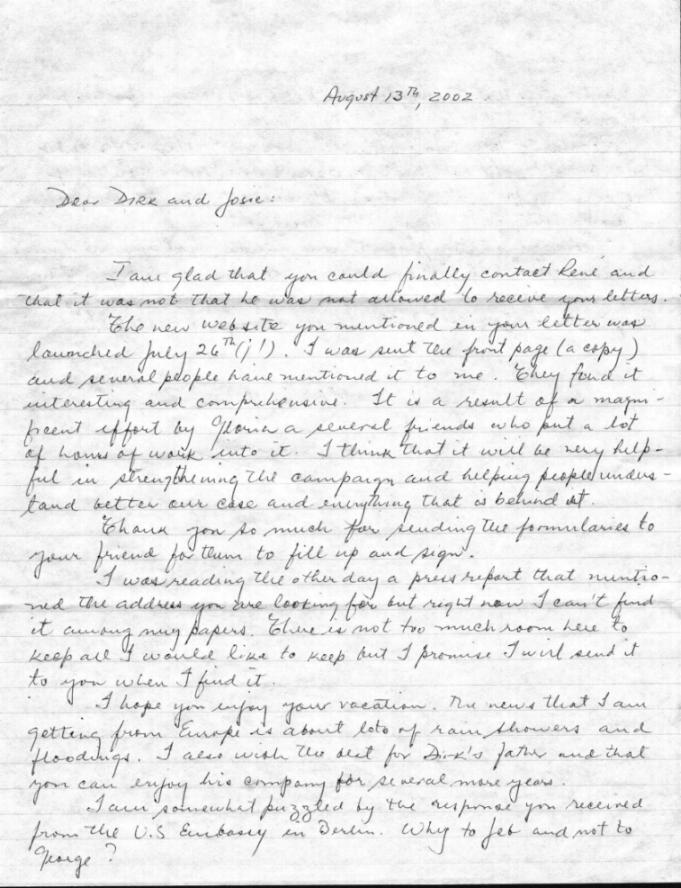 August 13Th, 2002
Dear Dirk and Josie:
I am glad that you could finally contact René and
that it was not that he was not allowed to receive your letters.
The new website you mentioned in your letter was
launched July 26Th (¡!). I was sent the front page (a copy)
and several people have mentioned it to me. They find it
interesting and comprehensive. It is a result of a magni-
ficent effort by Gloria a several friends who put a lot
of hours of work into it. I think that it will be very help-
ful in strengthening the campaign and helping people unders-
tand better our case and everything that is behind it.
Thank you so much for sending the formularies to
your friend for them to fill up and sign.
I was reading the other day a press report that mentio-
ned the address you are looking for but right now I can't find
it among my papers. There is not too much room here to
keep all I would like to keep but I promise I will send it
to you when I find it.
I hope you enjoy your vacation. The news that I am
getting from Europe is about lots of rain showers and
floodings. I also wish the best for Dirk's father and that
you can enjoy his company for several more years.
I am somewhat puzzled by the response you received
from the U.S Embassy in Berlin. Why to Jeb and not to
George?